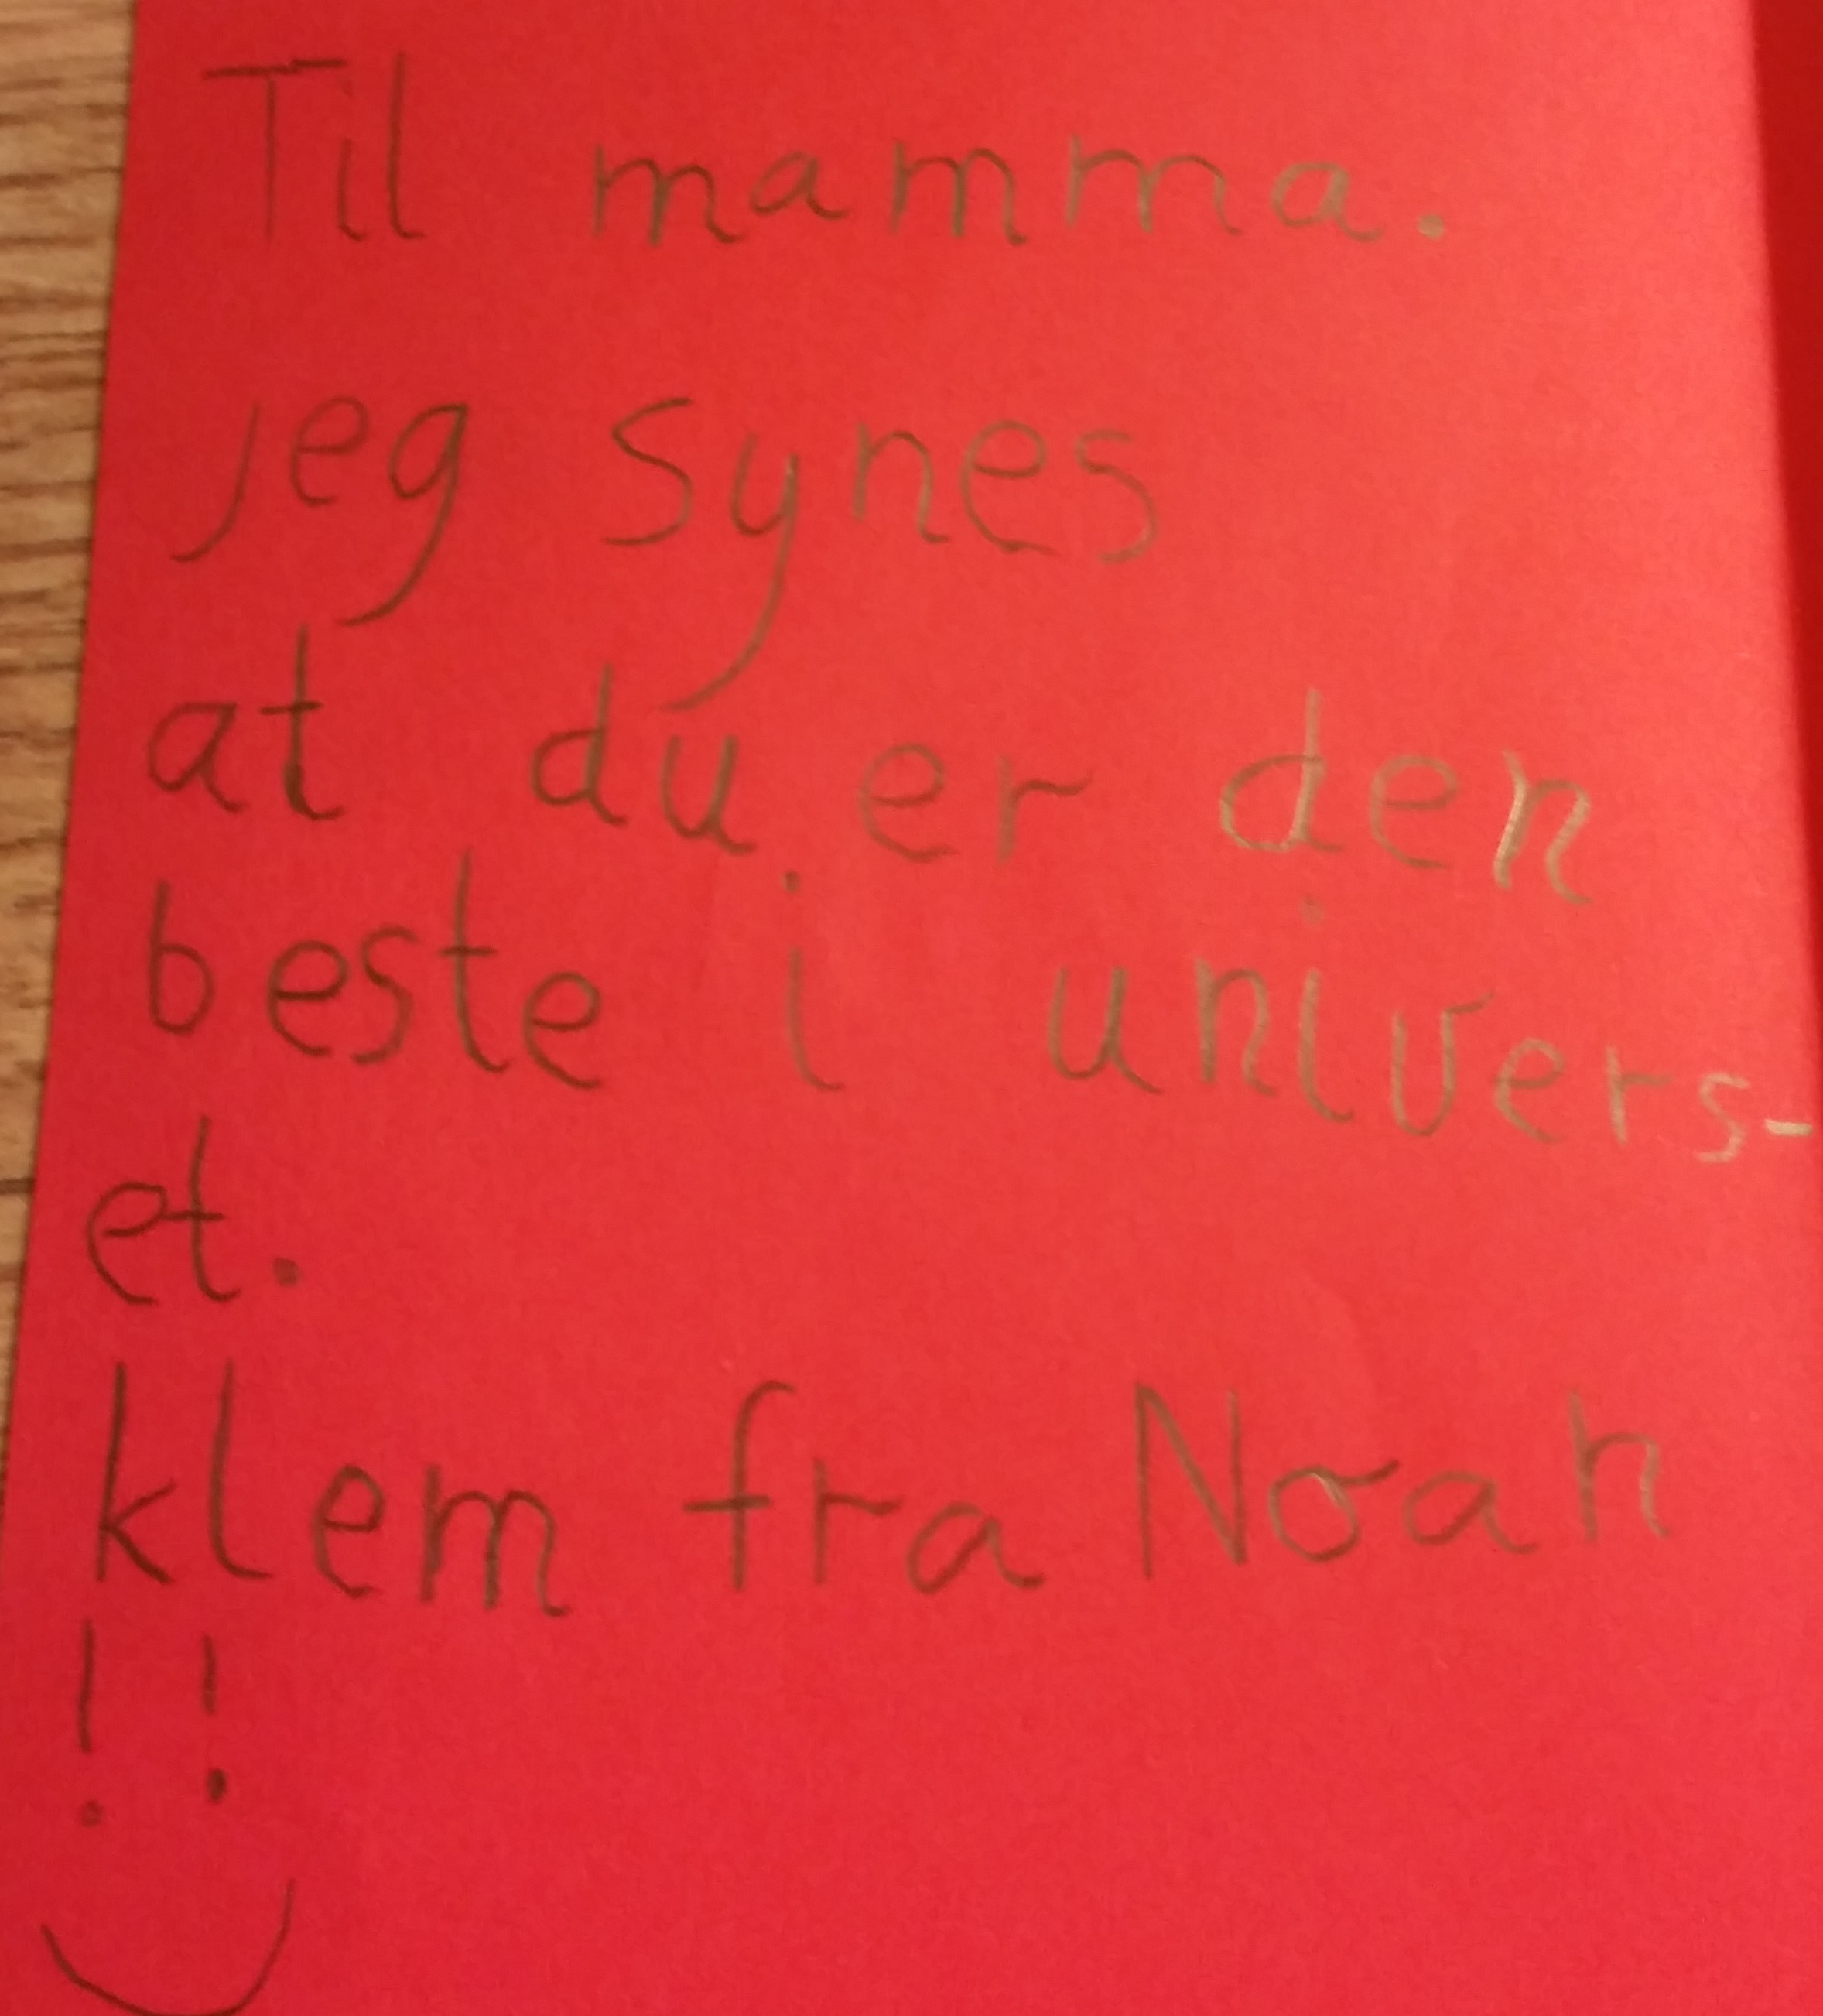 Til mamma.
jeg synes
at du er den
beste i univers-
et.
klem fra Noah
!!